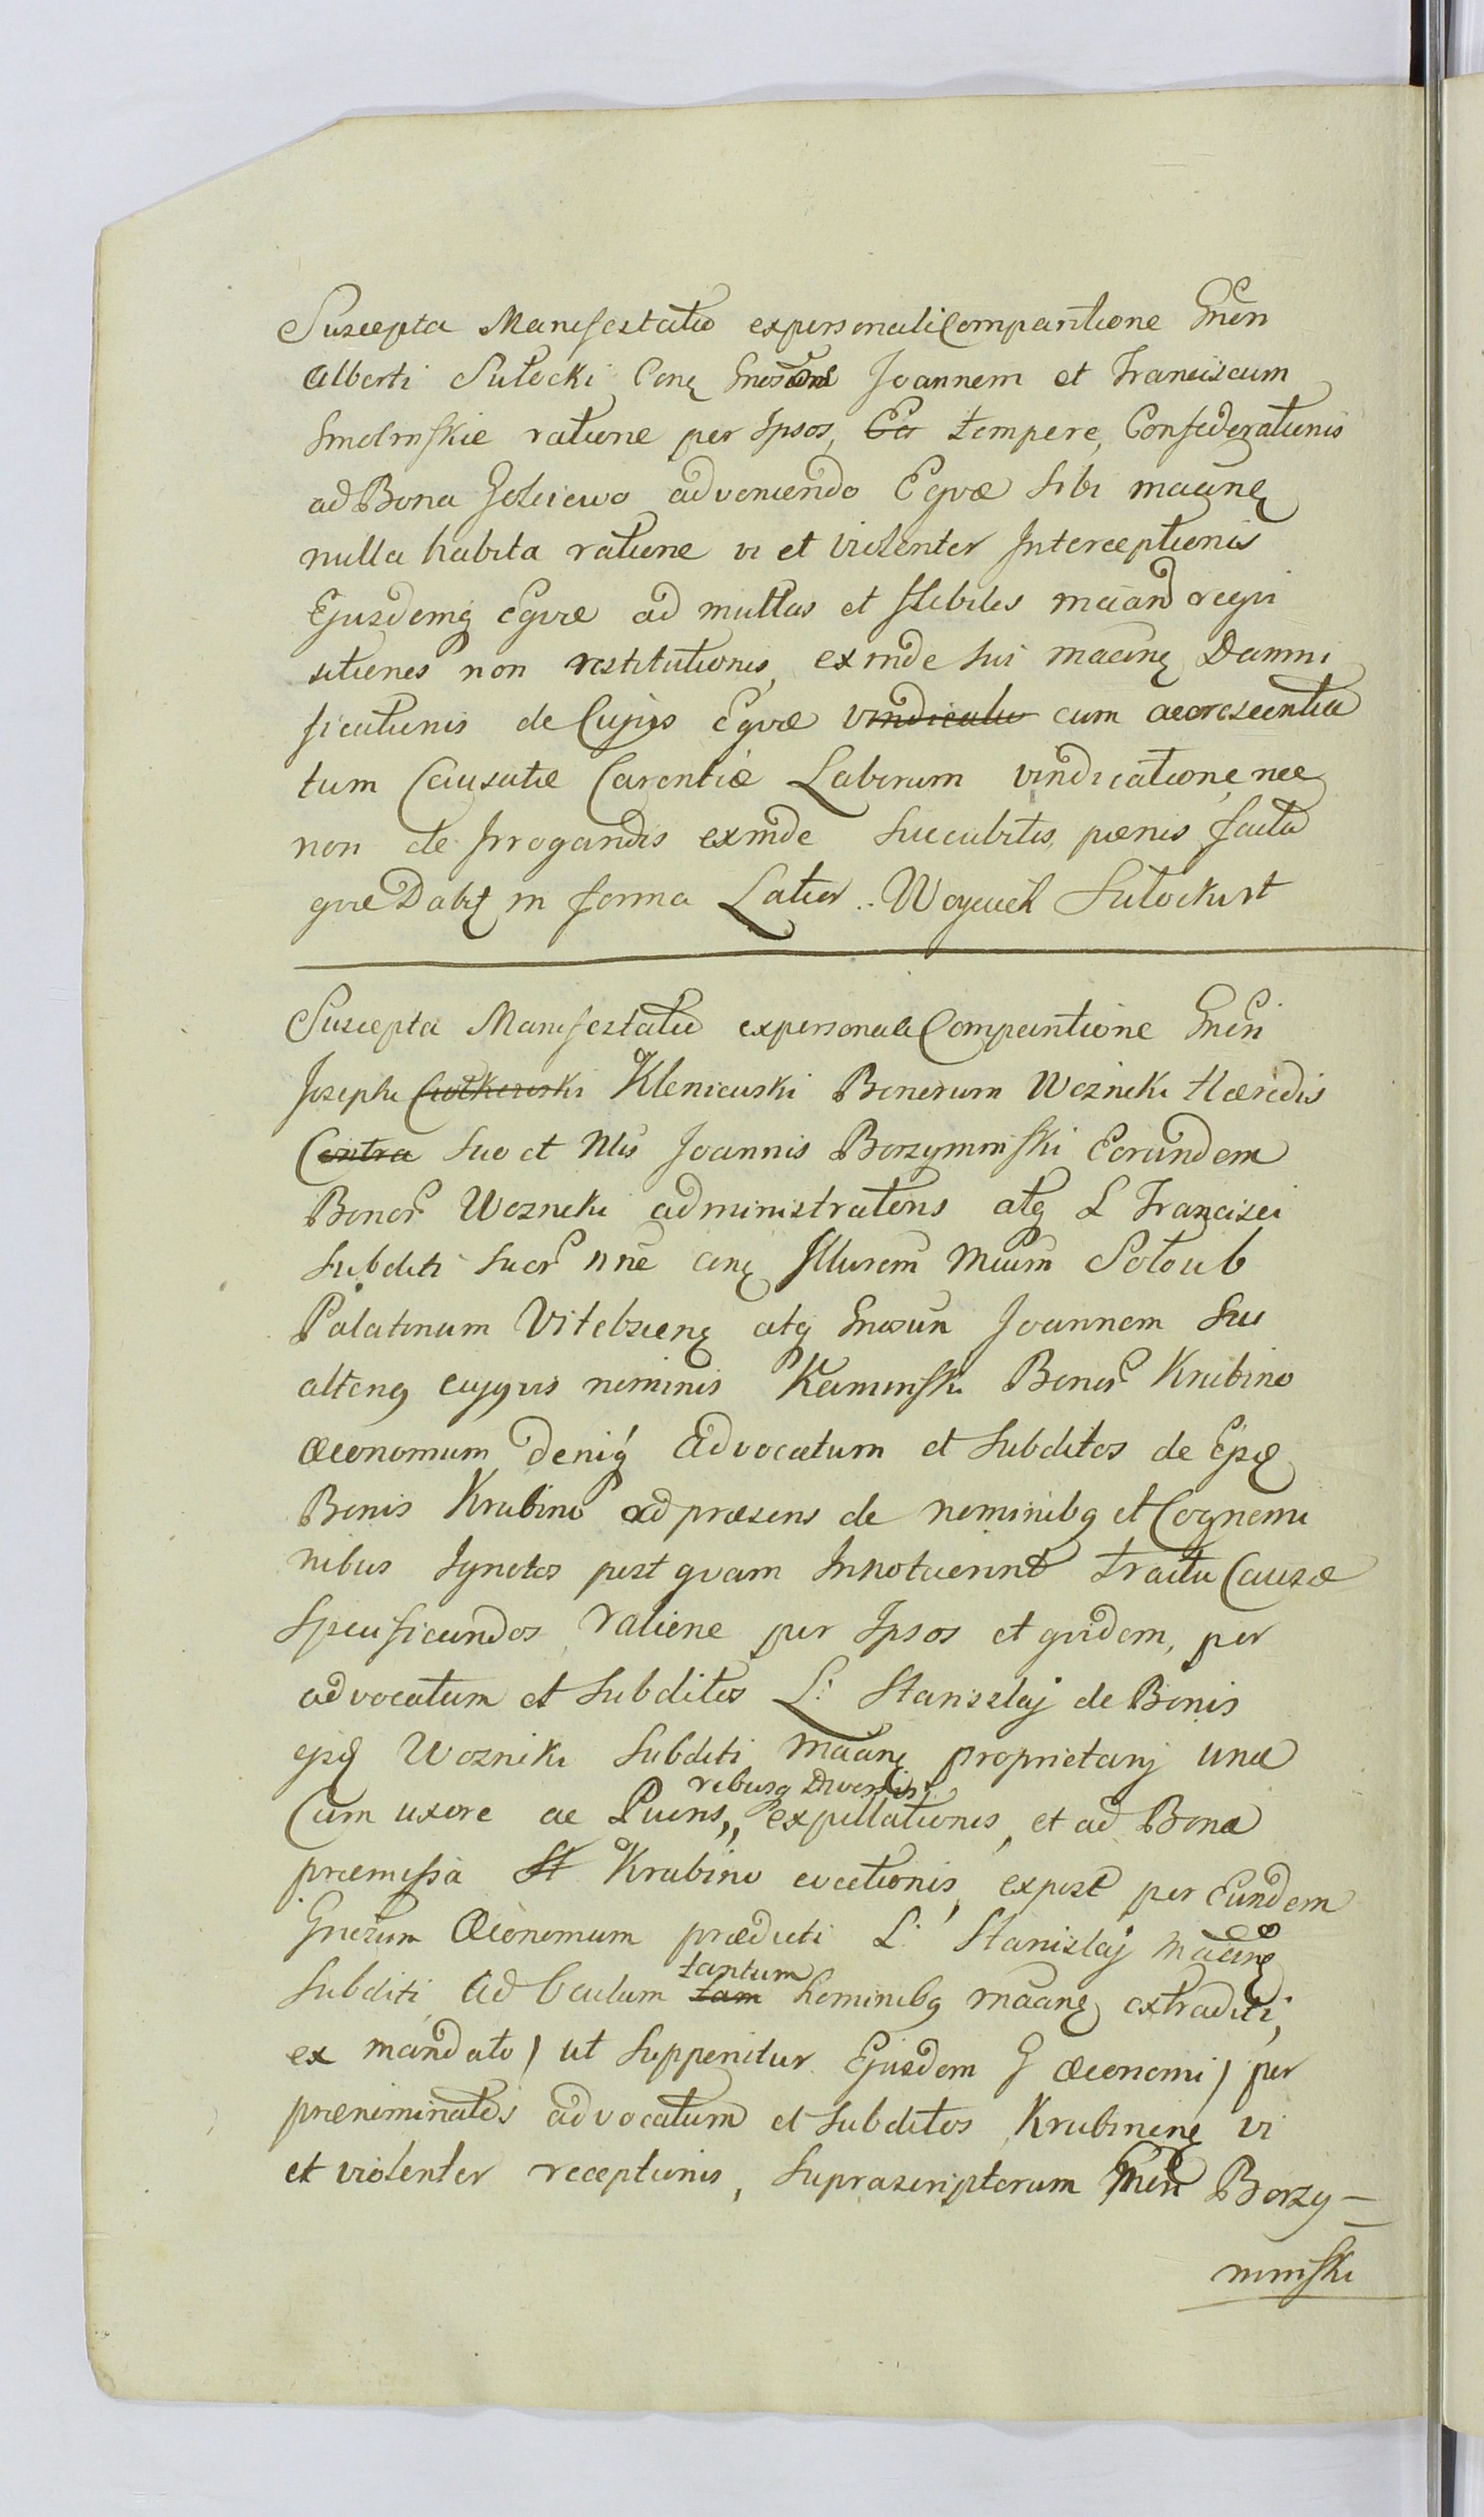 Suscepta Manifestatio ex personali Comparitione Gnen
Alberti Sułocki Conq Gnosos Joannem et Franciscum
Smolinskie ratione per Ipsos, Eo tempore, Confederationis
ad Bona Goliewo adveniendo Equæ sibi maănq
nulla habita ratione vi et violenter Interceptionis
Ejusdemq Equæ ad multas et flebiles măand requi
sitiones non restitutionis, exinde sui maănq Damni
ficationis de Cujus Equæ vindicatio cum accrescentia
tum Causatæ Carentiæ Laborum vindicatione nec
non de Irrogandis exinde succubitis, pœnis facta
quæ Dabit in forma Latior .. Woyciech Sułocki
Suscepta Manifestatio ex personali Comparitione Gnen
Josephi Klenieuski Bonorum Wozniki Hæredis
Contra suo et Nlis Joannis Borzyminski Eorundem
Bonor Wozniki administratoris atq L Francisci
Subditi suor nne conq Illurem Mcum Sołoub
Palatinum Vitebscenq atq Gnosum Joannem seu
altenq cujqvis nominis Kaminski Bonor Krubino
Œconomum deniq Advocatum et subditos de Ejsq
Bonis Krubino ad præsens de nominibq et Cognomi
nibus Ignotos post quam Innotuerint tractu Causæ
Specificandos, ratione per Ipsos et quidem, per
advocatum et subditos L. Stanislaj de Bonis
ejsq Wozniki subditi maănq proprietarij una
rebusq Diversis
Cum uxore ac Pueris,, expillationis, et ad Bona
præmissa St Krubino evectionis, expost per Eundem
Gnosum Œconomum prædicti L. Stanislaj maănq
tantum
subditi, ad Oculum tam hominibq maănq extraditi,
ex mandato / ut supponitur Ejusdem G œconomi / per
prænominatos advocatum et subditos Krubinenq vi
et violenter receptionis, suprascriptorum Gnen Borzy-
minski